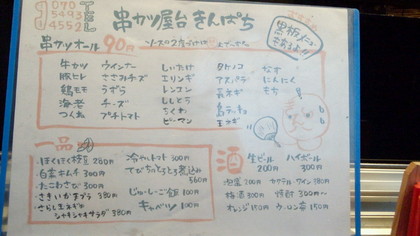 TEL
070
5493
4552
串カツ屋台 きんぱち
黒板メニューもあるよ!!
串カツオール 90円
ソースの2度づけ
牛カツ ウインナー しいたけ タケノコ なす
豚ヒレ ささみチーズ エリンギ アスパラ にんにく
鶏モモ うずら レンコン 長ネギ もち
海老 チーズ ししとう 島ラッキョ
つくね プチトマト ちくわ 玉ネギ
ピーマン
一品
ほくほく枝豆 280円
白菜キムチ 300円
たこわさび 300円
さきいか天ぷら 380円
さらし玉ネギのシャキシャキサラダ 380円
冷やしトマト 300円
てびちとろとろ煮込み 560円
じゅーしーご飯 100円
キャベツ 100円
酒
生ビール 200円
ハイボール 300円
泡盛 200円 カクテル ワイン 380円
梅酒 300円 焼酎 300円〜
オレンジ 150円 ウーロン茶 150円